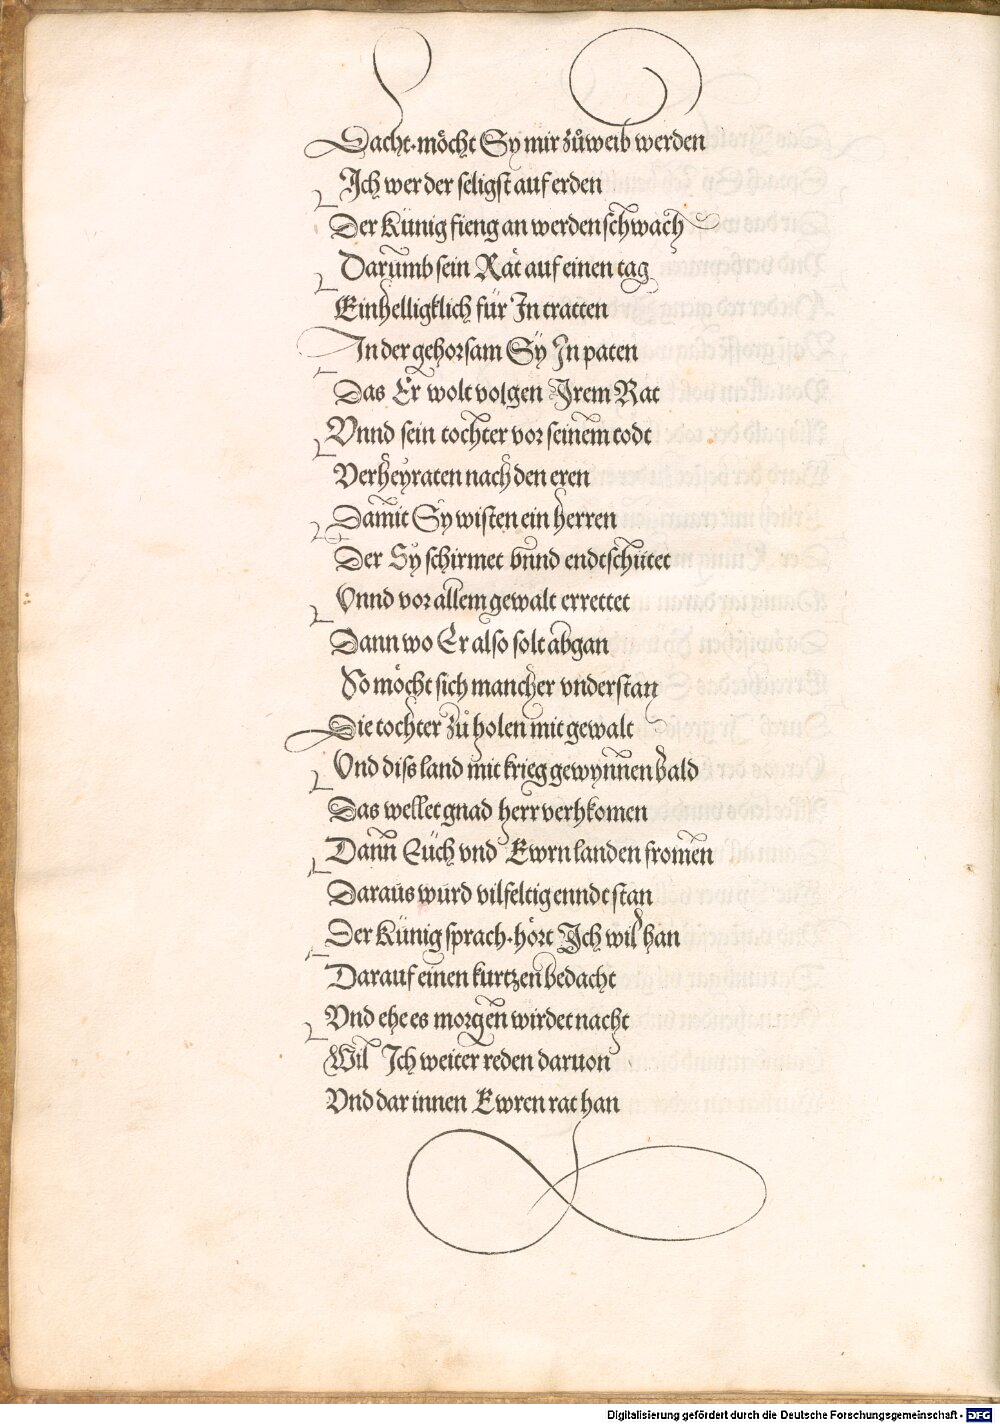 Dacht·möcht Sy mir zůweib werden
Ich wer der seligst auf erden
Der Künig fieng an werden schwach
Darumb sein Rät auf einen tag
Einhelligklich für In tratten
In der gehorsam Sÿ In paten
Das Er wolt volgen Irem Rat
Vnnd sein tochter vor seinem todt
Verheyraten nach den eren
Damit Sÿ wisten ein herren
Der Sÿ schirmet vnnd endtschütet
Vnnd vor allem gewalt errettet
Dann wo Er also solt abgan
So möcht sich mancher vnderstan
Die tochter zů holen mit gewalt
Vnd diss land mit krieg gewynnen bald
Das wellet gnad herr verhkomen
Dann Eüch vnd Ewrn landen fromen
Daraus wurd vilfeltig enndtstan
Der Künig sprach·hört Ich wil han
Darauf einen kurtzen bedacht
Vnd ehe es morgen wirdet nacht
Wil Ich weiter reden daruon
Vnd dar innen Ewren rat han
Digitalisierung gefördert durch die Deutsche Forschungsgemeinschaft - DFG